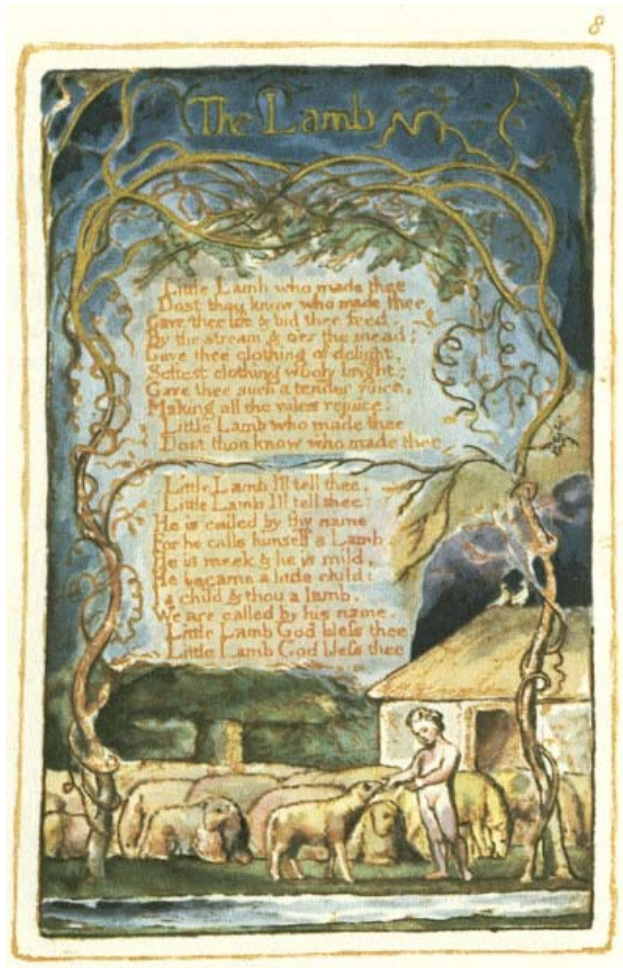 8
The Lamb
Little Lamb who made thee
Dost thou know who made thee
Gave thee life & bid thee feed.
By the stream & o'er the mead;
Gave thee clothing of delight,
Softest clothing wooly bright;
Gave thee such a tender voice,
Making all the vales rejoice.
Little Lamb who made thee
Dost thou know who made thee
Little Lamb I'll tell thee,
Little Lamb I'll tell thee;
He is called by thy name,
For he calls himself a Lamb
He is meek & he is mild,
He became a little child:
I a child & thou a lamb,
We are called by his name.
Little Lamb God bless thee
Little Lamb God bless thee